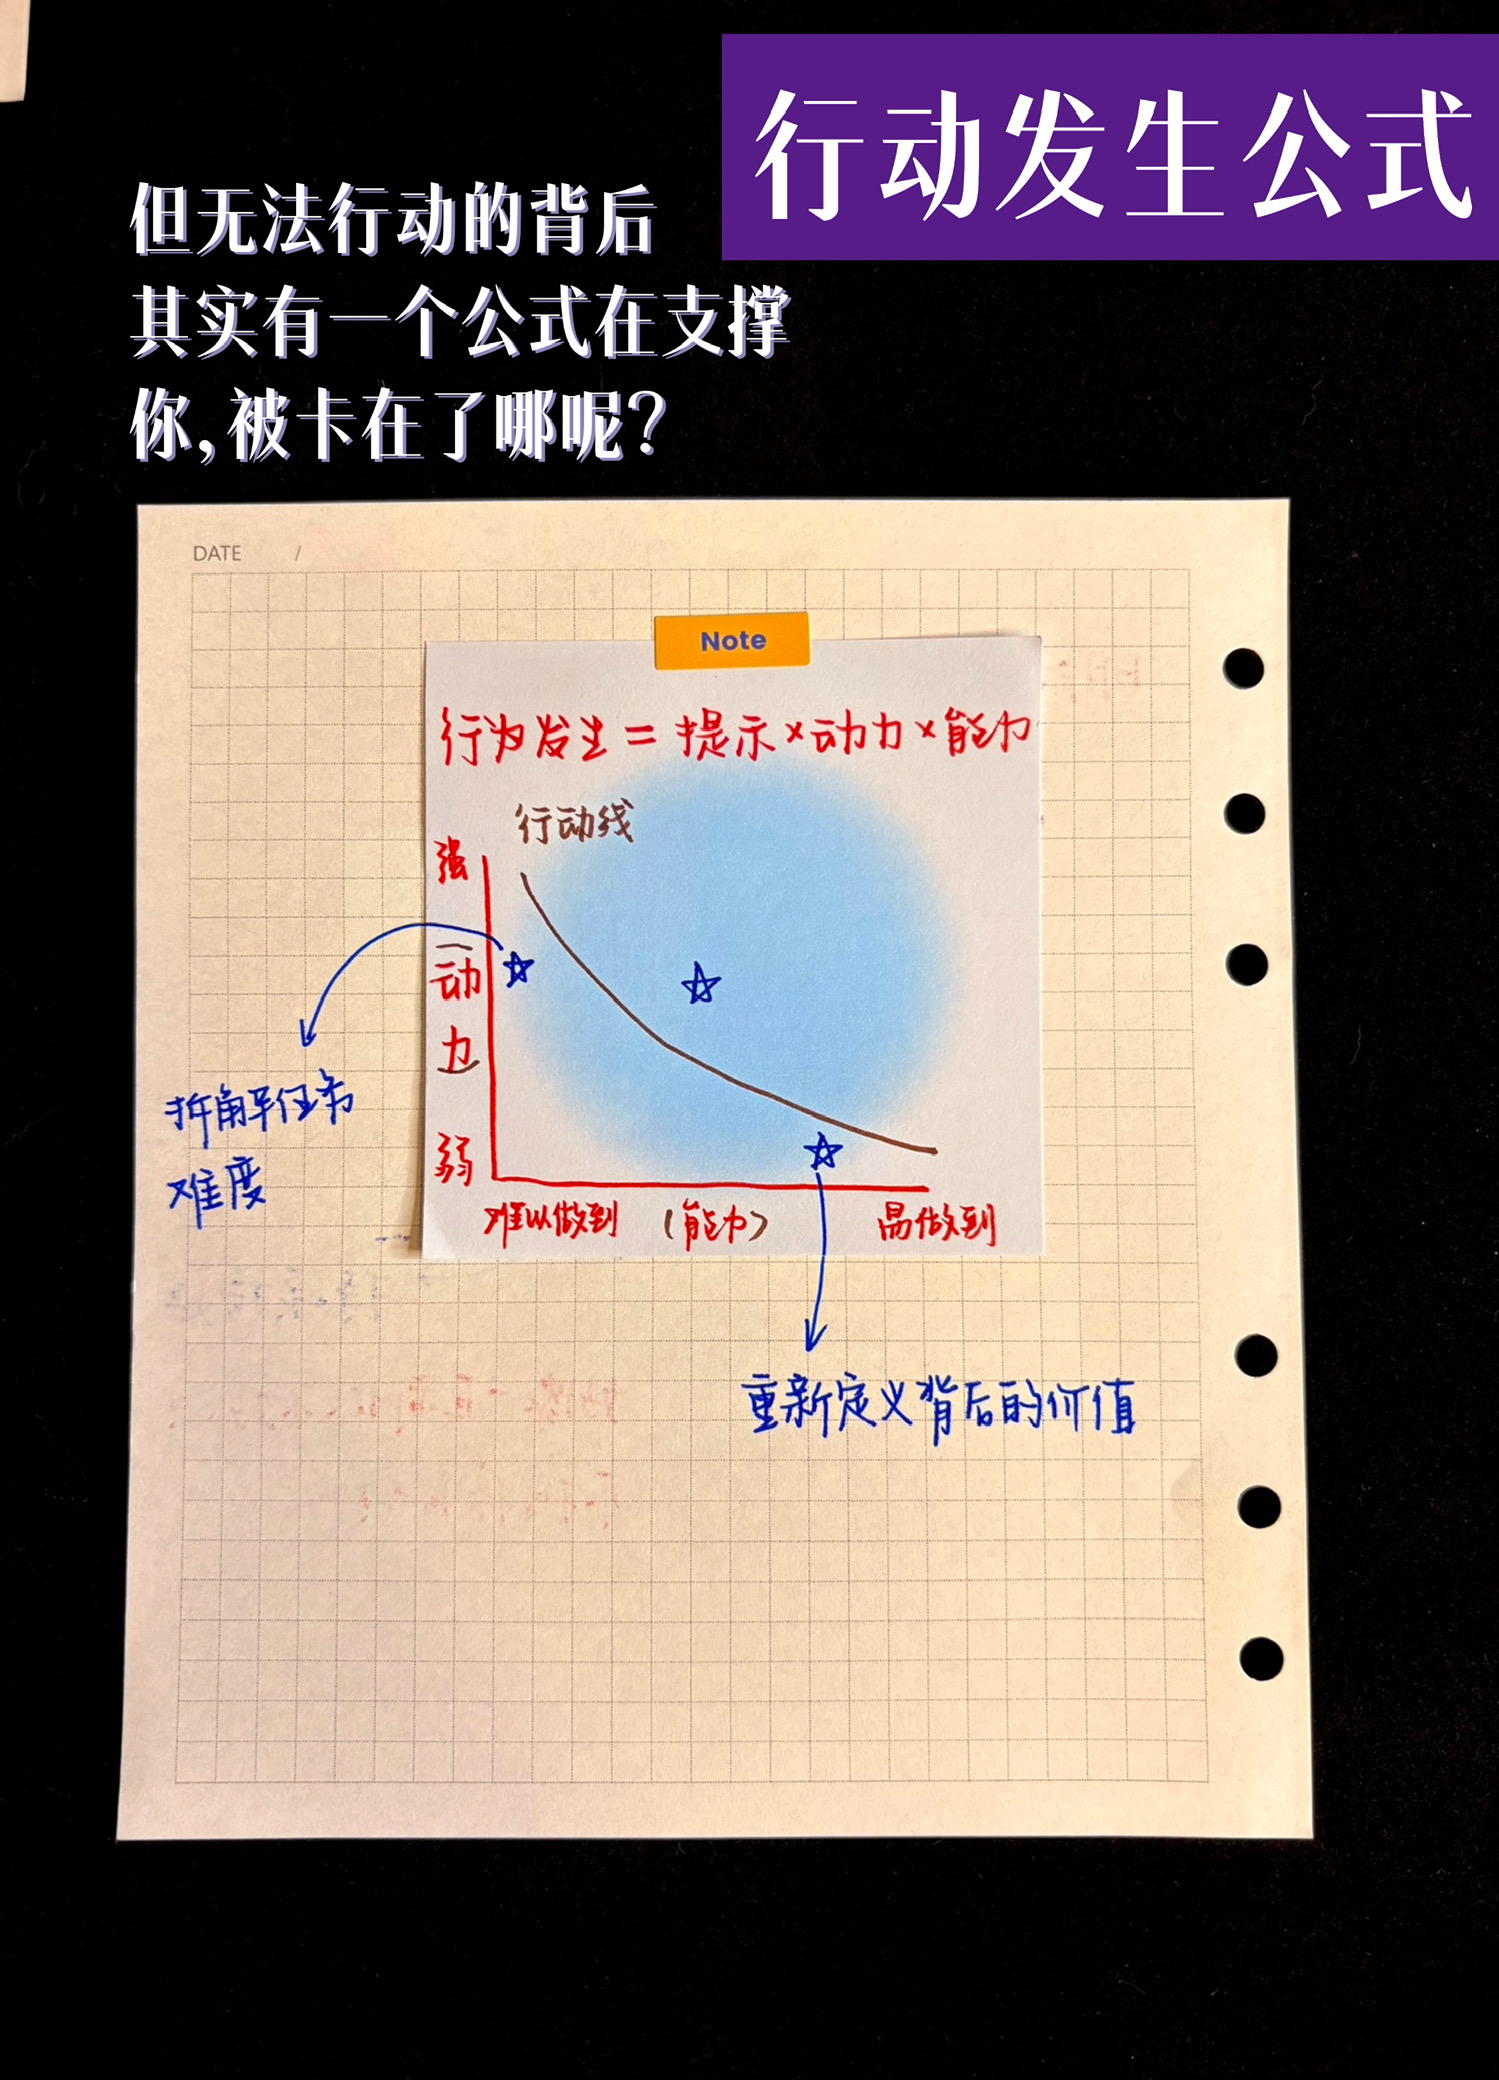 行动发生公式
但无法行动的背后
其实有一个公式在支撑
你,被卡在了哪呢?
DATE /
Note
行为发生=提示×动力×能力
行动线
强
(动力)
弱
难以做到 (能力) 易做到
拆解任务
难度
重新定义背后的价值